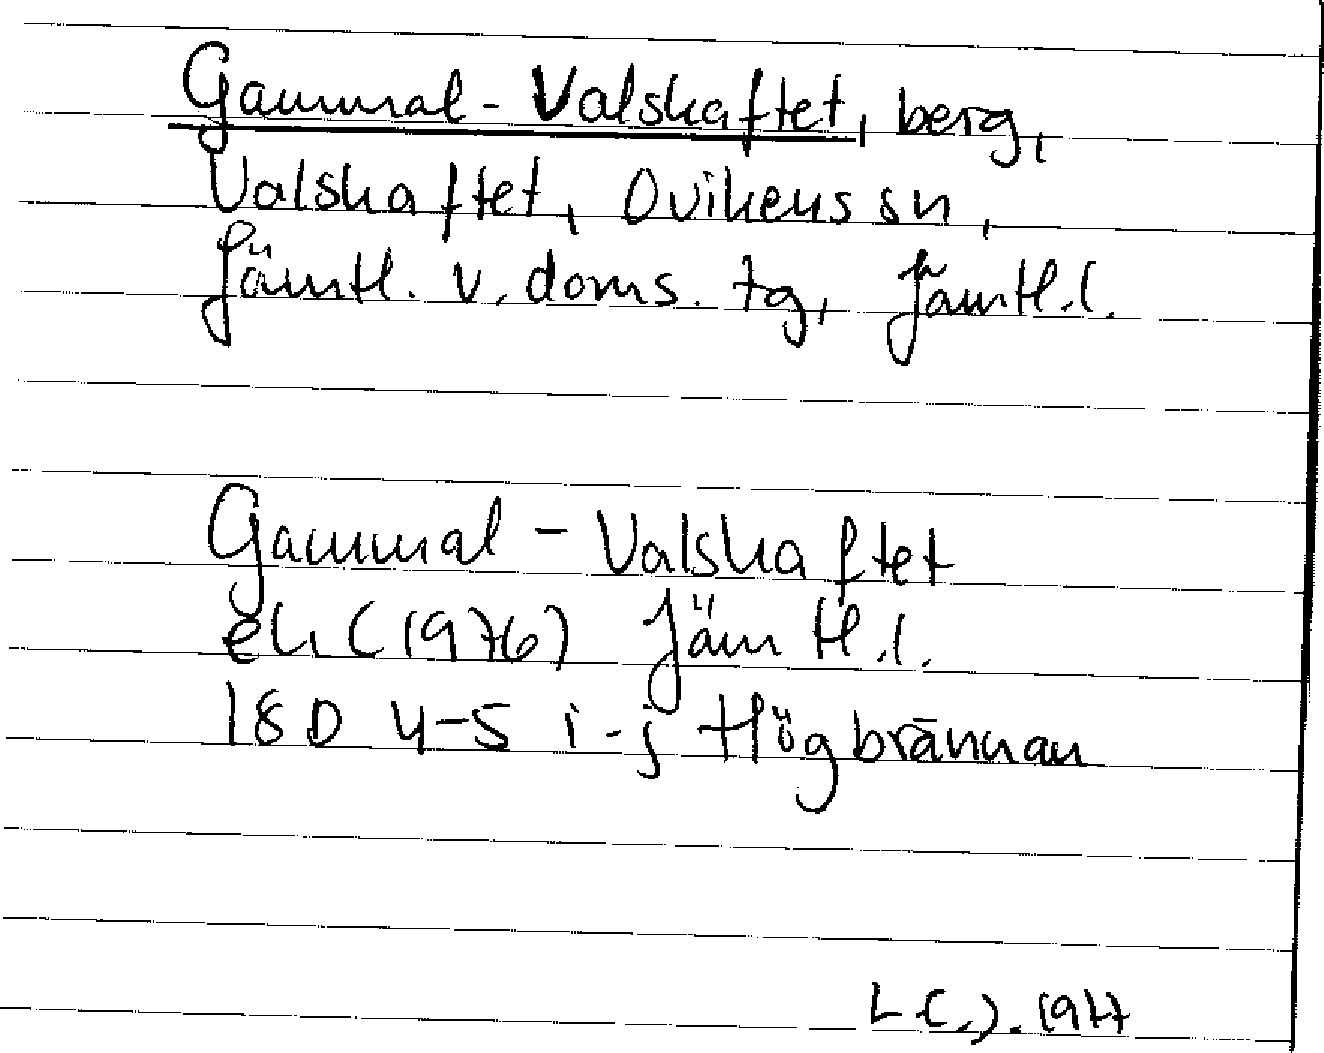 Gammal-Valskaftet, berg,
Valskaftet, Ovikens sn,
Jämtl. v. doms. tg, Jämtl.l.
Gammal-Valskaftet
ek (1976) Jämtl.l.
18D 4-5 i-j Högbrännan
1977